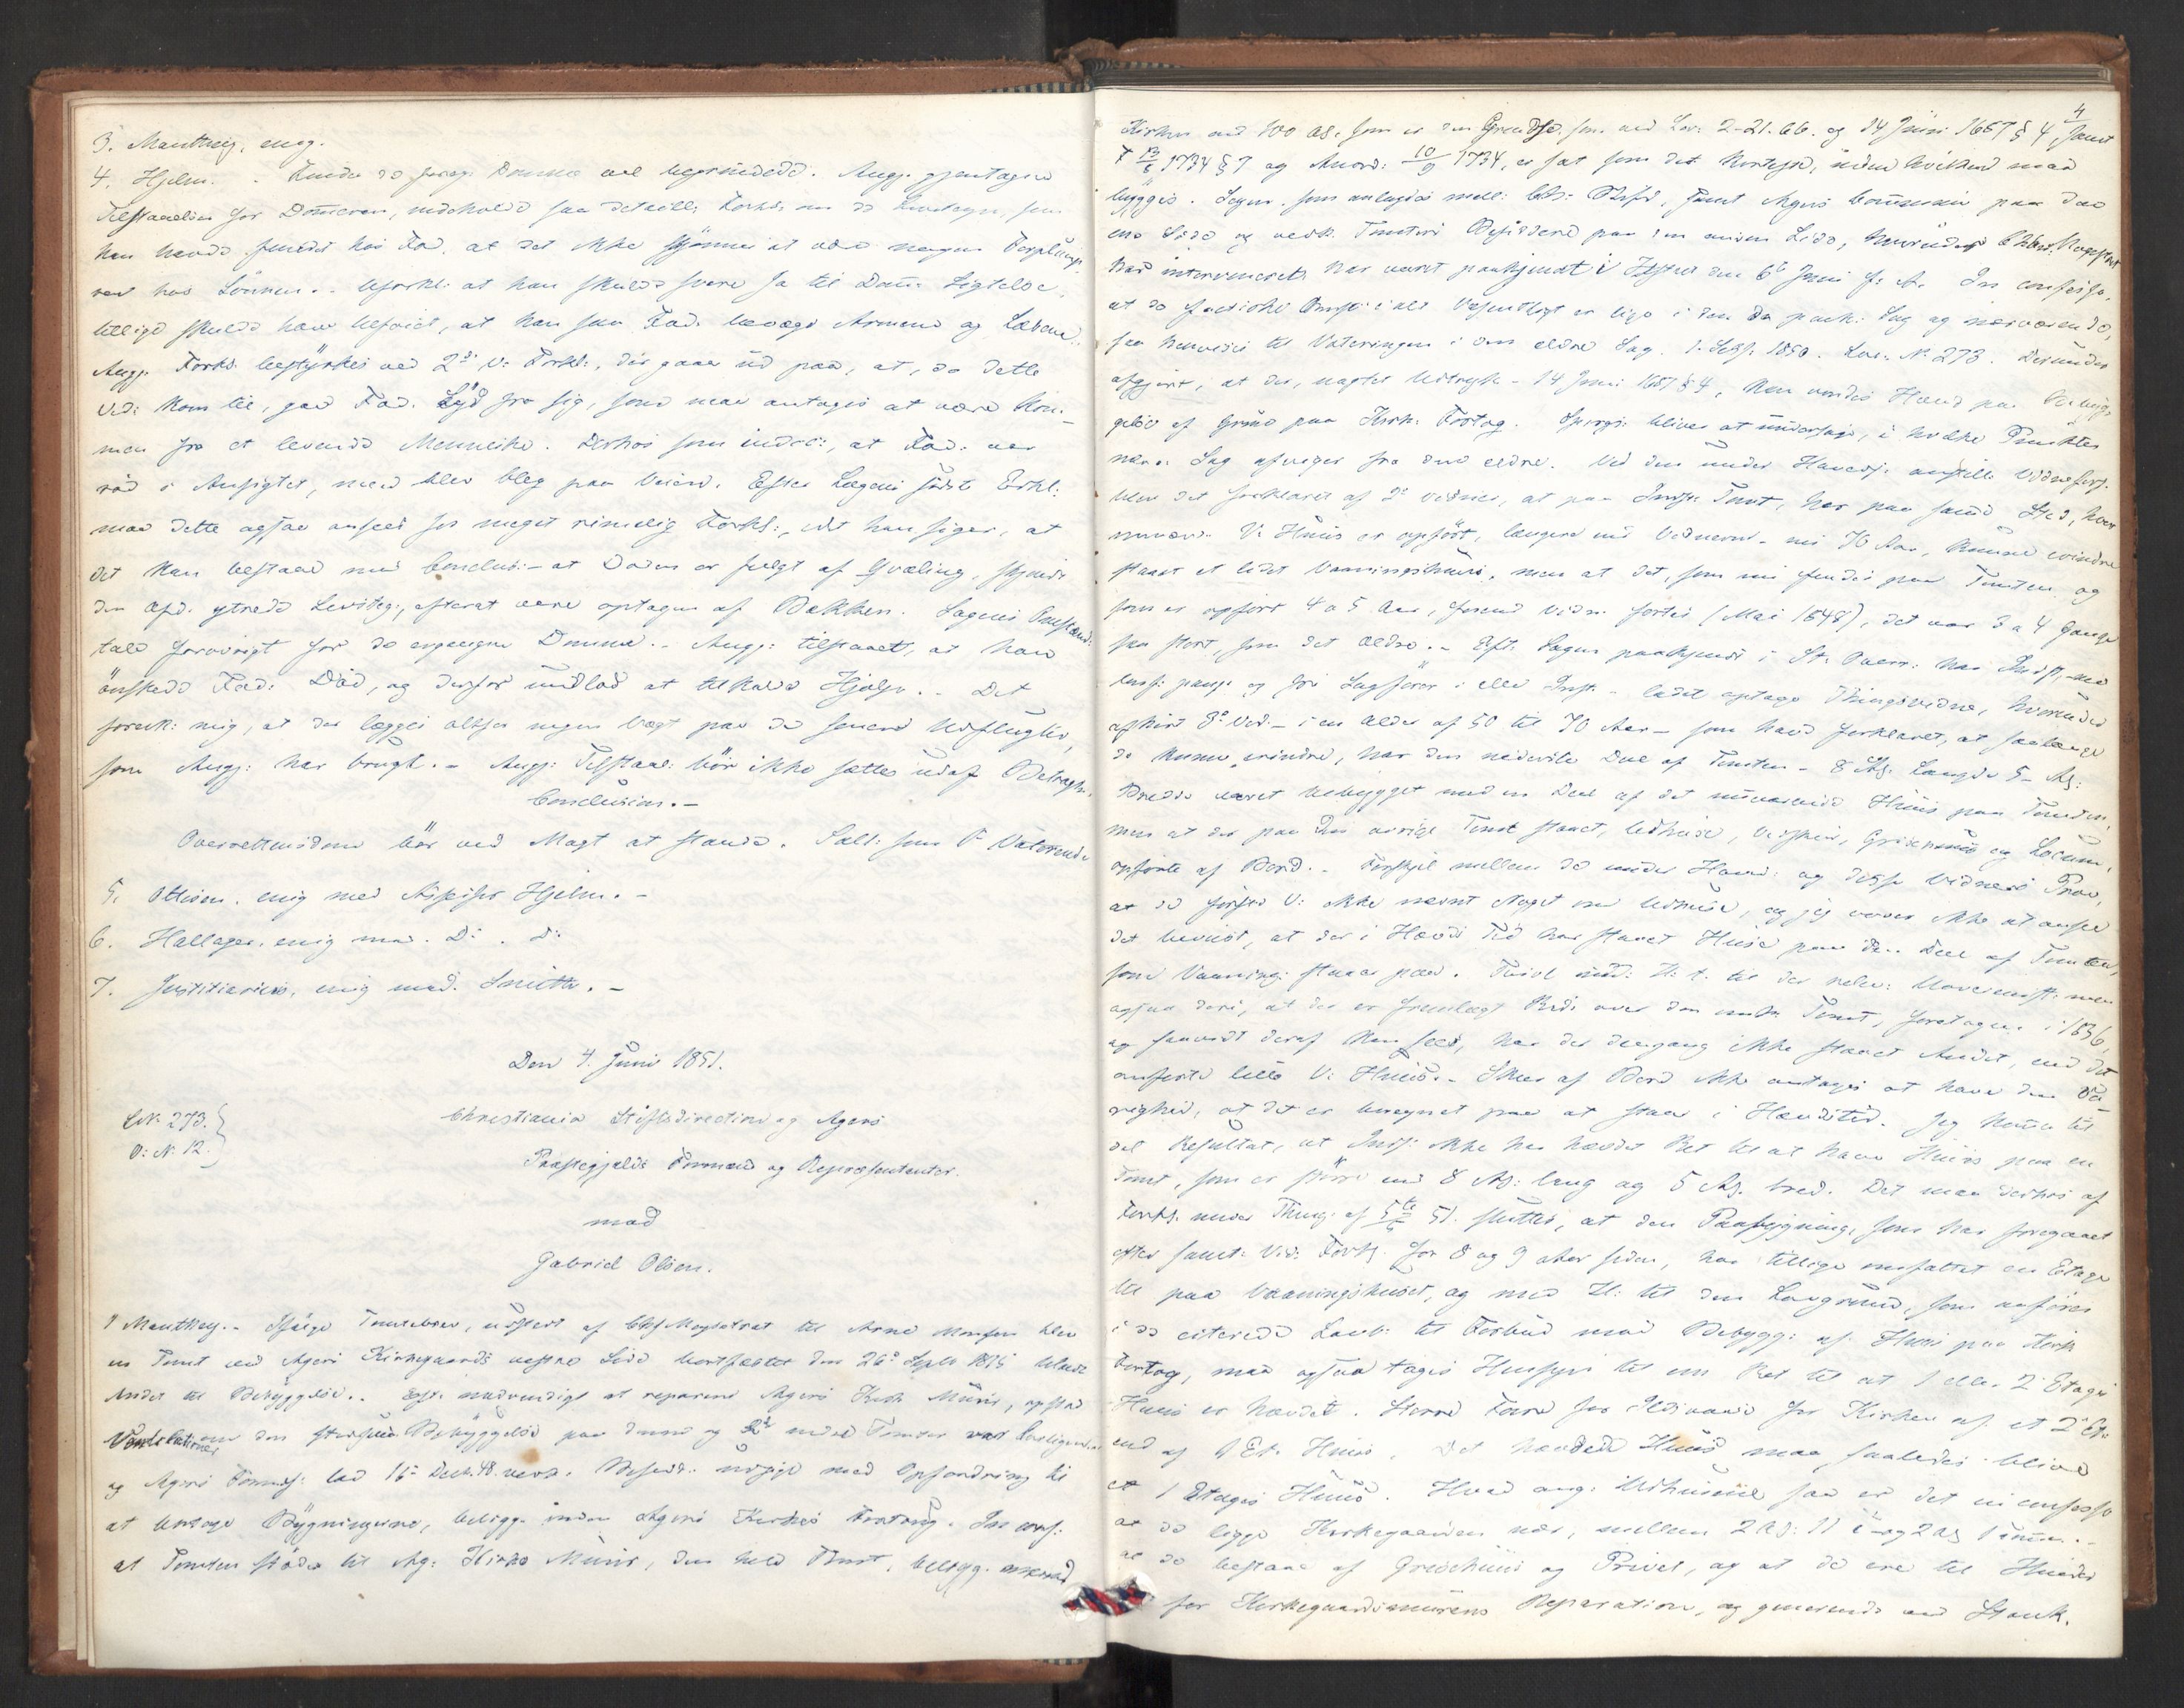 3. Manthey, enig.
4. Hjelm. - Finder de foreg. Domme vel begrundede. Angj. gjentagne
Tilstaaelser for Domeren, indeholde saa detaill: Forkl: om de Livstegn, som
han havde fundet hos Fad. at det ikke skjönnes at være nogen
hos Sönnen. - at han skulde svare Ja til Dom
tillige skulde have, at han saa Fad. bevæge Armene og Læberne.
Ang. Forkl. bestyrkes ved 2det V: Forkl:, der gaar ud paa, at, da dette
Vid: kom til, gav Fad. Lyd fra sig, som maa antages at være kom-
men fra et levende Menneske. Derhos som indr:, at Fad: var
röd i Ansigtet, men blev bleg paa Veien. Efter Lægens sidst Erkl:
maa dette ogsaa ansees for meget rimelig Forkl:, idet han siger, at
det kan bestaae med Conclus: - at Döden er fulgt af Qvæling, skjönt
den Afd. ytrede Livsteg:, efterat være optagen af Bækken. Sagens Omstænd:
tale forövrigt for de ergangne Domme. - Angj: tilstaaet, at han
önskede Fad: Död, og derfor undlod at tilkalde Hjælp. - Det
forek: mig, at der lægges altfor megen Vægt paa de senere Udflugter,
som Angj: har brugt. - Angj: Tilstaael: bör ikke sættes ud af Betragtn.
Conclusion. -
Overretsdommen bör ved Magt at stande. Sall: som 1ste Voterende
5. Ottesen. enig med Assessor Hjelm. -
6. Hallager. enig med. D: . D:
7. Justitiarius, enig med. Smith. -
Den 4. Juni 1851.
L.N. 273.
O: N. 12.
Christiania Stiftsdirection og Agers
Præstegjelds Formænd og Repræsentanter.
mod
Gabriel Olsen.
1 Manthey. - Ifölge Tomtebrev, udstedt af Chr. Magistrat til Arne blev
en Tomt ved Agers Kirkegaards vestre Side bortfæstet den 26de Septb 1815
Andet til Bebyggelse. - Efter nödvendigt at reparere Agers Kirk. Muur, opstod
om den Bebyggelse paa denne og 2de andre Tomter
og Agers Formsk: lod 16de Decb. 48. vedk. Besidd. med Opfordring til
at borttage Bygningerne, beligg. inden Agers Kirkes Fortoug. In conf:
at Tomten stöder til Ag: Kirke Muur, den hele Tomt, beligg.
4
Kirken end 100 Al. som er den Grændse, som ved Lov: 2-21.66. og 14 Juni 1667 § 4, samt
F 13/5 1734 § 7 og Anord: 10/9 1734, er sat som det korteste, inden hvilket maa
bygges. Sagen. som anlagdes mell: Chr: Stift, samt Agers Commune paa den
ene Side og vedk. Tomters Besiddere paa den anden Side, hvorunder Chr. Magistrat
har interveneret, har været paakjendt i Höiest. den 6te Juni f. A. In confesso,
at de factiske Omst. i alt Væsentligt er lige i den da paak: Sag og nærværende,
saa henvises til Voteringen i den ældre Sag. 1. Sess. 1850. Lov. N. 273. Derunder
afgjort, at der, uagtet Udtryk - 14 Juni 1667 § 4, kan vindes Hævd paa Bebyg-
gelse af Grund paa Kirk. Fortog. Spörgs: bliver at undersöge, i hvilke Punkter
nærv. Sag afviger fra den ældre. Ved den under Hovedsj. anstille Vidneförs.
blev det forklaret af 2de Vidner, at paa Indst. Tomt, har paa samme Sted, hvor
nuvær. V: Huus er opfört, længere end Vidnerne - nu 70 Aar, kunne erindre
staaet et lidet Vaaningshuus, men at det, som nu findes paa Tomten og
som er opfört 4 a 5 Aar, förend Vidn. förtes (Mai 1848), det var 3 a 4 Gange
saa stort, som det ældre. - Eft. Sagens paakjendt i St: Overr: har Indst, med
benef: paup: og fri Sagförer: eller Inst. - ladet optage Thingsvidne, hvorunder
afhört 3de Vid. - i en Alder af 50 til 70 Aar - som have forklaret, at saalænge
de kunne erindre, har den nederste Deel af Tomten - 8 Al: Længde 5 - Al:
Bredde været bebygget med en Deel af det nuværende Huus paa Tomten,
men at der paa den övrige Tomt staaet, Udhuse, Vedskur, Griisehuus og Locum,
opförte af Bord. - Forskjel mellem de under Hoved: og disse Vidners Prov,
at de förste V: ikke nævnt Noget om Udhuse, og jeg vover ikke at ansee
det beviist, at der i Hævds Tid har staaet Huse paa den Deel af Tomten,
som Vaaning: staaer paa. Tvivl med: H: t. til der Uoverenst: men
ogsaa deri, at der er fremlagt Rids over den omtv. Tomt, foretagen i 1836,
og saavidt deraf kan sees, har der dengang ikke staaet Andet, end det
anförte lille V: Huus. - Skur af Bord ikke antages at have den Va-
righed, at det er beregnet paa at staae i Hævdstid. Jeg komer til
det Resultat, at Indst: ikke har hævdet Ret til at have Huus paa en
Tomt, som er större end 8 Al: lang og 5 Al. bred. Det maa derhos af
Forkl. under Thing: af 5te 51. sluttes, at den Paabygning, som har foregaaet
efter samt: Vid: Forkl. for 8 og 9 Aar siden, har tillige omfattet en Etage
til paa Vaaningshuset, og med H: til den Lovgrund, som anföres
i de citerede Lovb: til Forbud mod Bebygg: af Huus paa Kirk.
Fortog, maa ogsaa tages Hensyn til om Ret til at 1 eller 2 Etages
Huus er hævdet. Större Fare for Ildsvaade for Kirken af et 2 Et.
end af 1 Et. Huus. Det hævdede Huus maa saaledes blive
et 1 Etages Huus. Hvad ang. Udhusene saa er det in confesso
at de ligge Kirkegaarden nær, mellem 2 Al: 11 og 2 Al 1. -
at de bestaae af Griisehuus og Privet, og at de ere til Hinder
for Kirkegaardsmurens Reparation, og generende ved Stank.